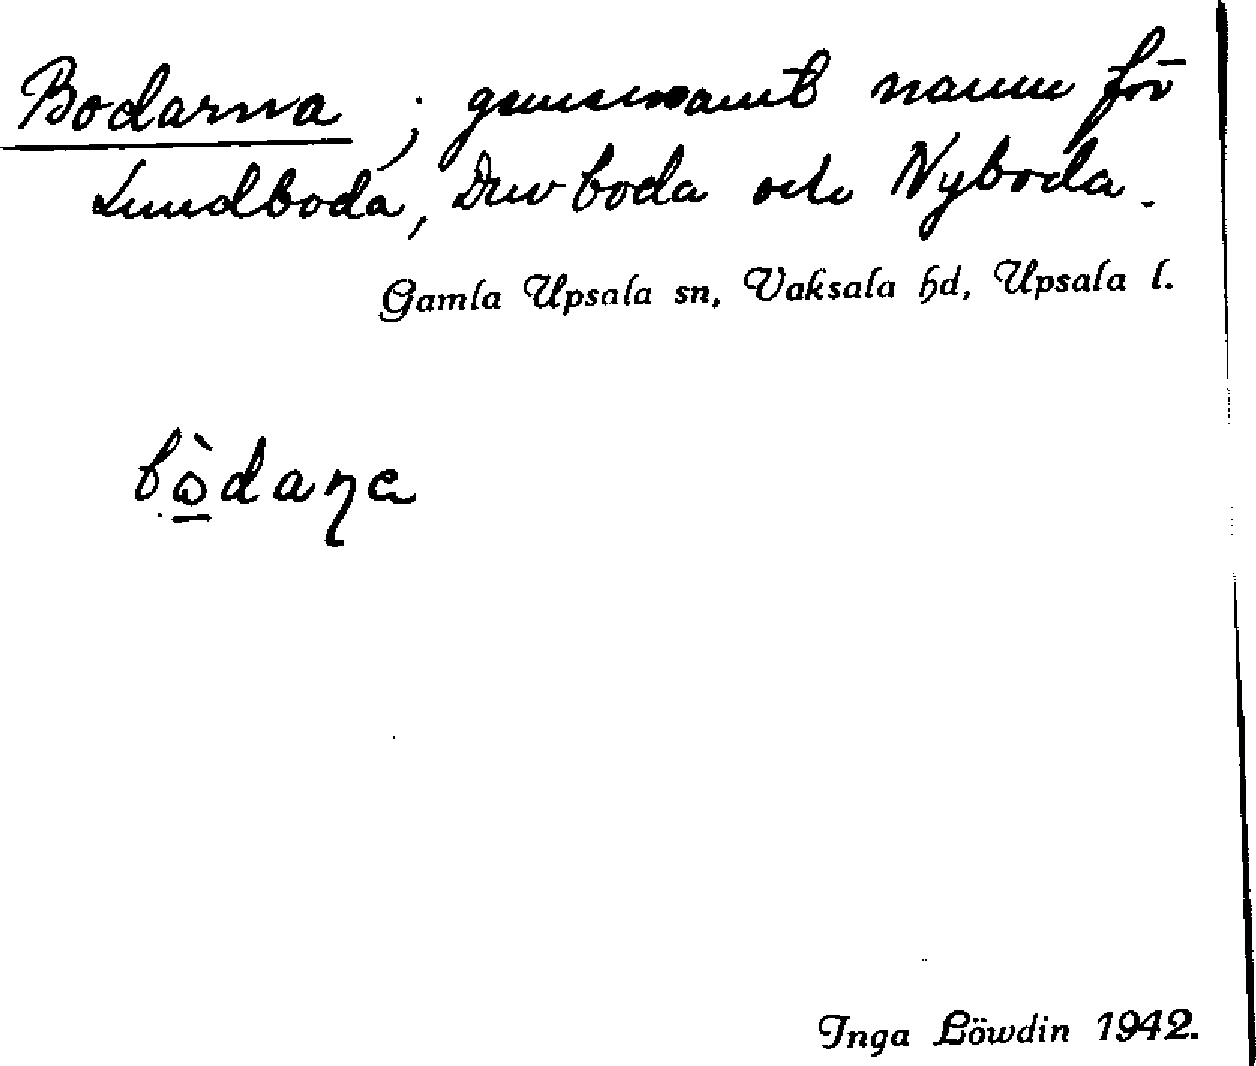 Bodarna; gemensamt namn för
Lundboda, Duvboda och Nyboda.
Gamla Upsala sn, Vaksala hd, Upsala l.
bὼ̲daɳa
Inga Löwdin 1942.